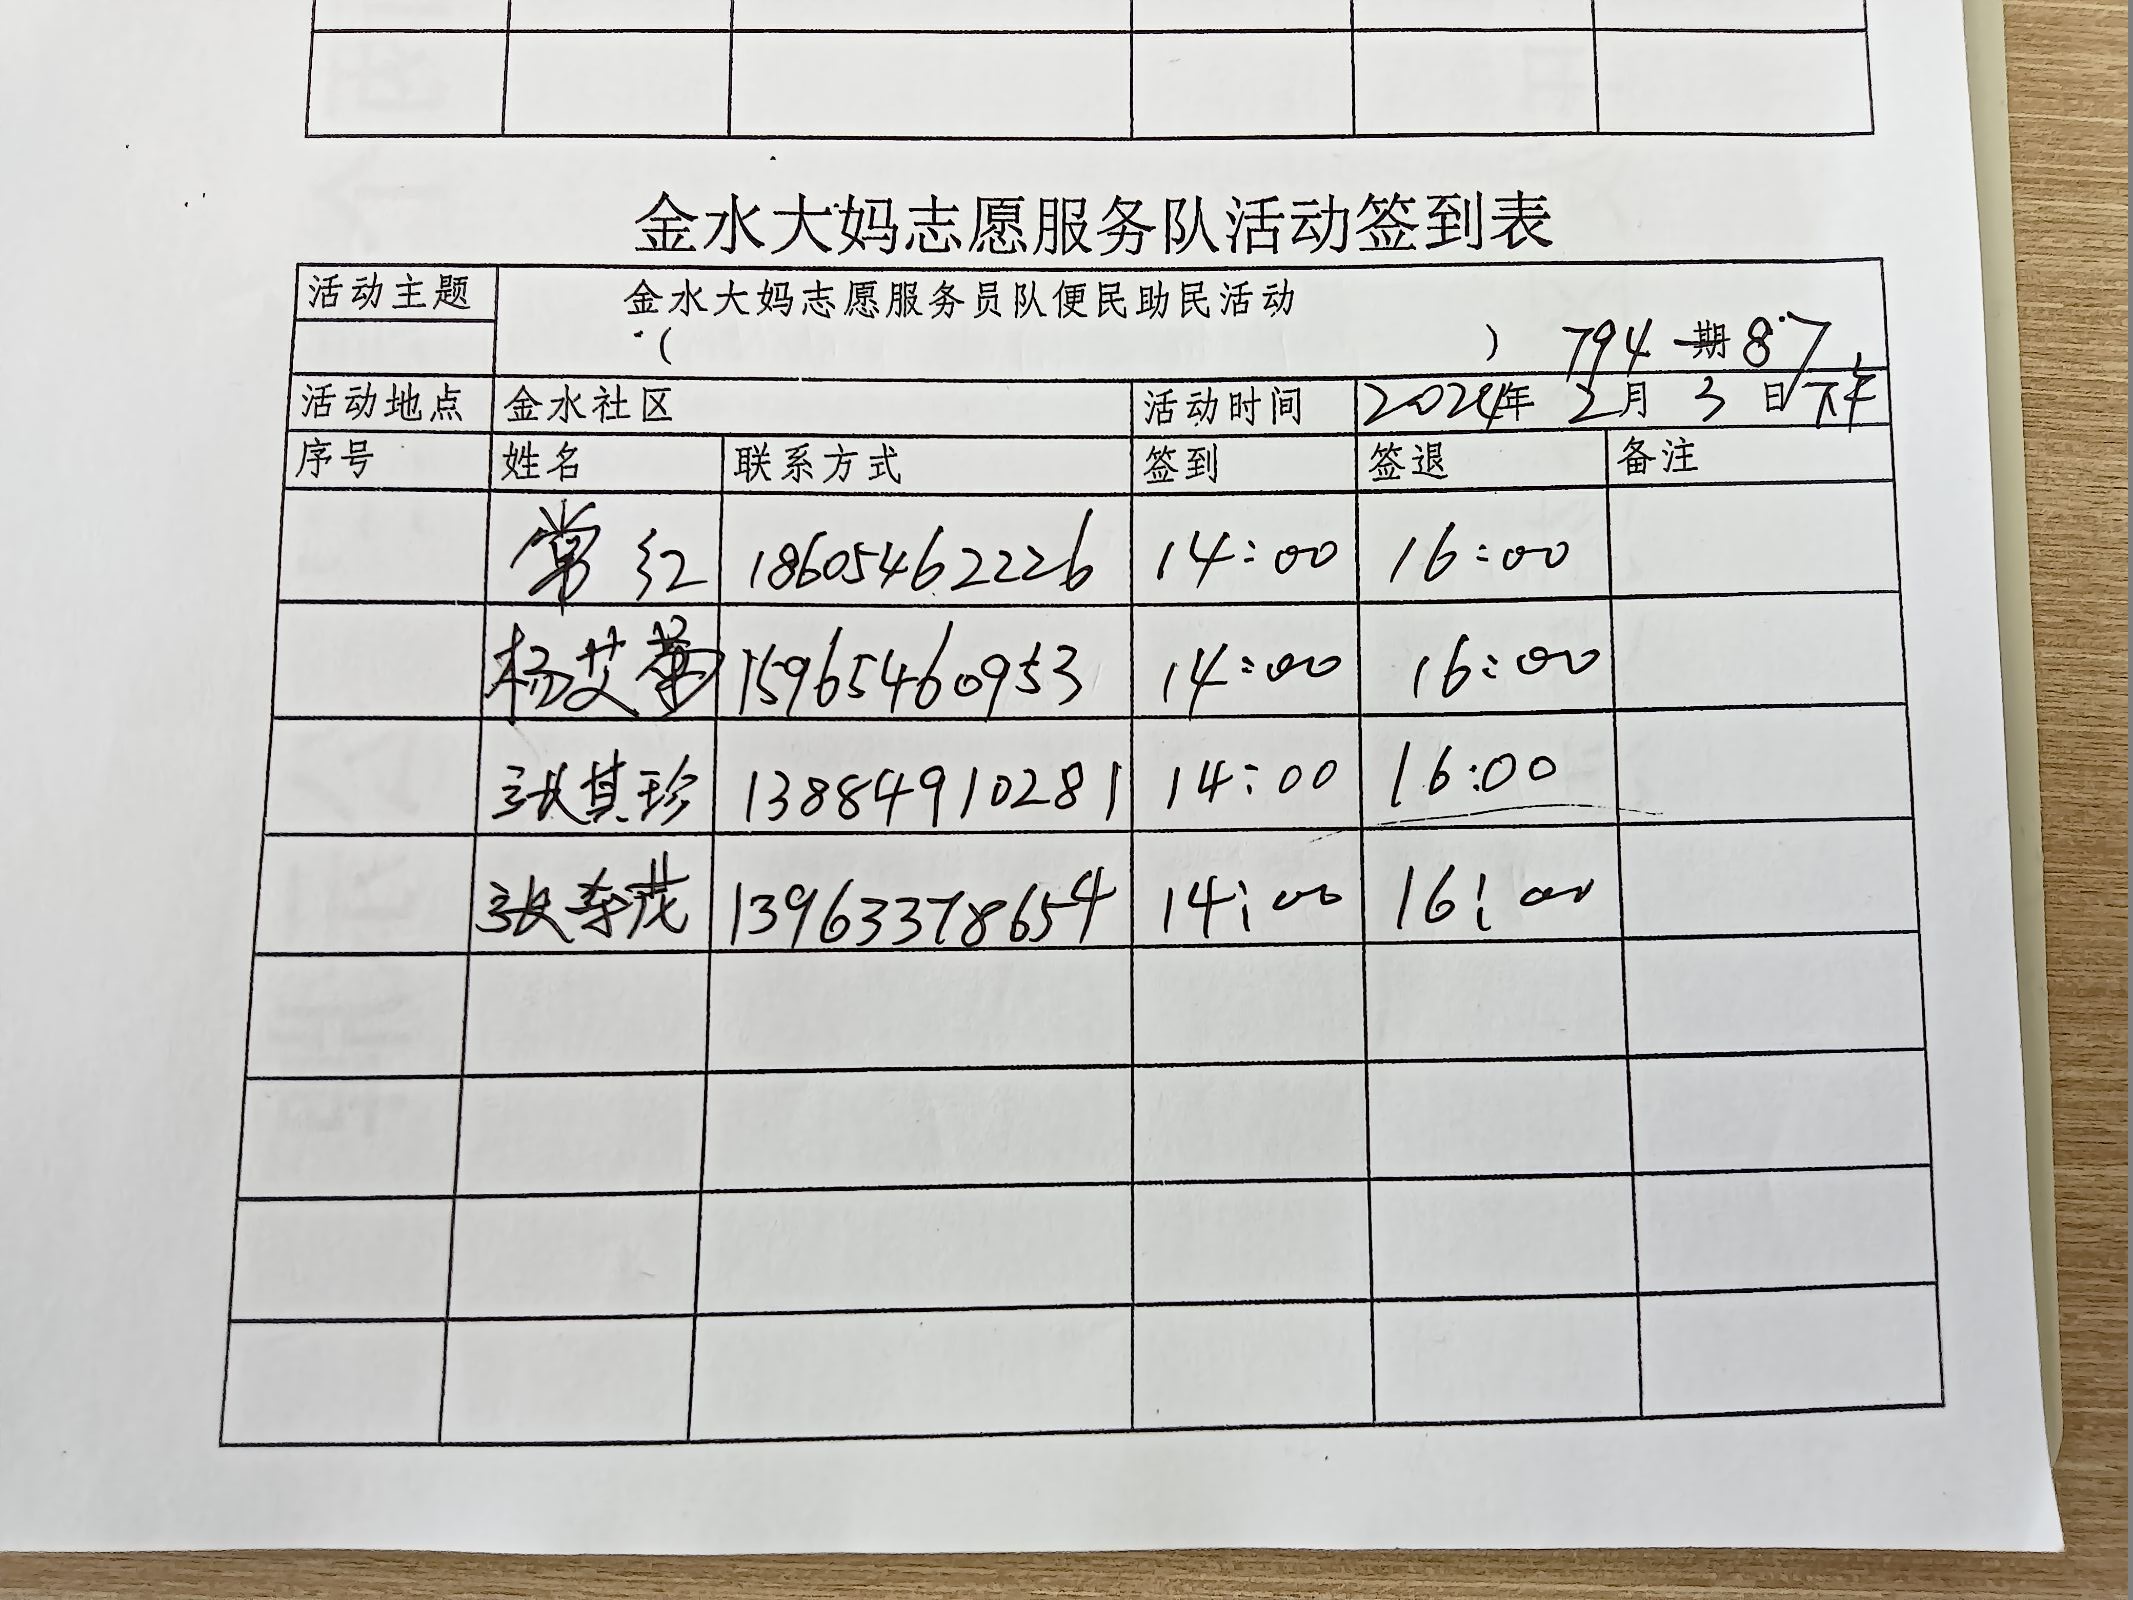 金水大妈志愿服务队活动签到表
活动主题 金水大妈志愿服务员队便民助民活动
( ) 794 期 8.7
活动地点 金水社区 活动时间 2024年 2月 3日 下午
序号 姓名 联系方式 签到 签退 备注
常红 18605462226 14:00 16:00
杨艾菊 15965460953 14:00 16:00
张其珍 13884910281 14:00 16:00
张 茂 13963378654 14:00 16:00